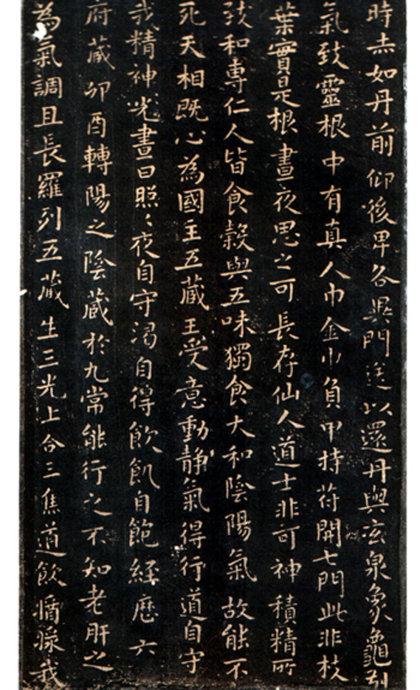 時赤如丹前仰後卑各異門送以還丹與玄泉象龜引
氣致靈根中有真人巾金巾負甲持符開七門此非枝
葉實是根晝夜思之可長存仙人道士非可神積精所
致和專仁人皆食穀與五味獨食大和陰陽氣故能不
死天相既心為國主五藏王受意動靜氣得行道自守
我精神光晝日照々夜自守渴自得飲飢自飽經歷六
府藏卯酉轉陽之陰藏於九常能行之不知老肝之
為氣調且長羅列五藏生三光上合三焦道飲我